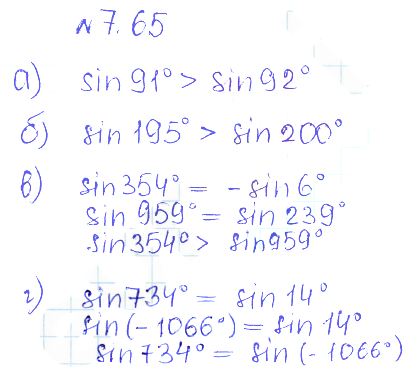 N 7.65
а) sin 91° > sin 92°
б) sin 195° > sin 200°
в) sin 354° = - sin 6°
sin 959° = sin 239°
sin 354° > sin 959°
г) sin 734° = sin 14°
sin (- 1066°) = sin 14°
sin 734° = sin (- 1066°)